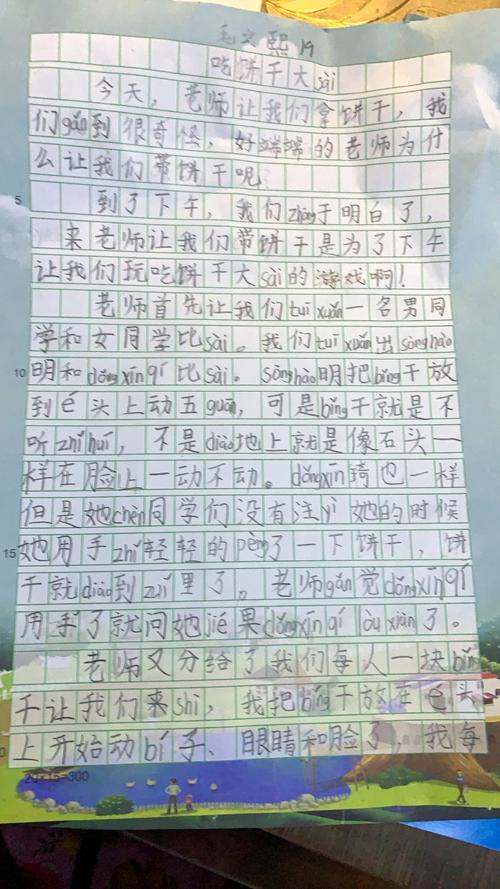 毛文熙 19
吃饼干大sài
今天，老师让我们拿饼干，我
们gǎn到很奇怪，好端端的老师为什
么让我们带饼干呢
5
到了下午，我们zhōng于明白了，
来老师让我们带饼干是为了下午
让我们玩吃饼干大sài的游戏啊！
老师首先让我们tuī xuǎn一名男同
学和女同学比sài。我们tuī xuǎn出sòng hào
10 明和dǒng xīn qí比sài。sòng hào明把bǐng干放
到é头上动五guān，可是bǐng干就是不
听zhǐ huī，不是diào地上就是像石头一
样在脸上一动不动。dǒng xīn琦也一样
但是她chèn同学们没有注yì她的时候
15 她用手zhǐ轻轻的pèng了一下饼干，饼
干就diào到zuǐ里了。老师gǎn觉dǒng xīn qí
用手了就问她jié果dǒng xīn qí lòu xiàn了。
老师又分给了我们每人一块bǐng
干让我们来shì，我把bǐng干放在é头
上开始动bí子、眼睛和脸了，我每